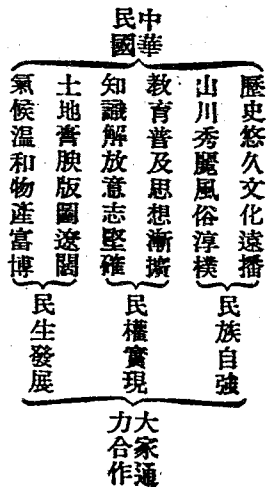 中華
民國
歷史悠久文化遠播
山川秀麗風俗淳樸
教育普及思想漸擴
知識解放意志堅確
土地膏腴版圖遼闊
氣候溫和物產富博
民族自強
民權實現
民生發展
大家通
力合作